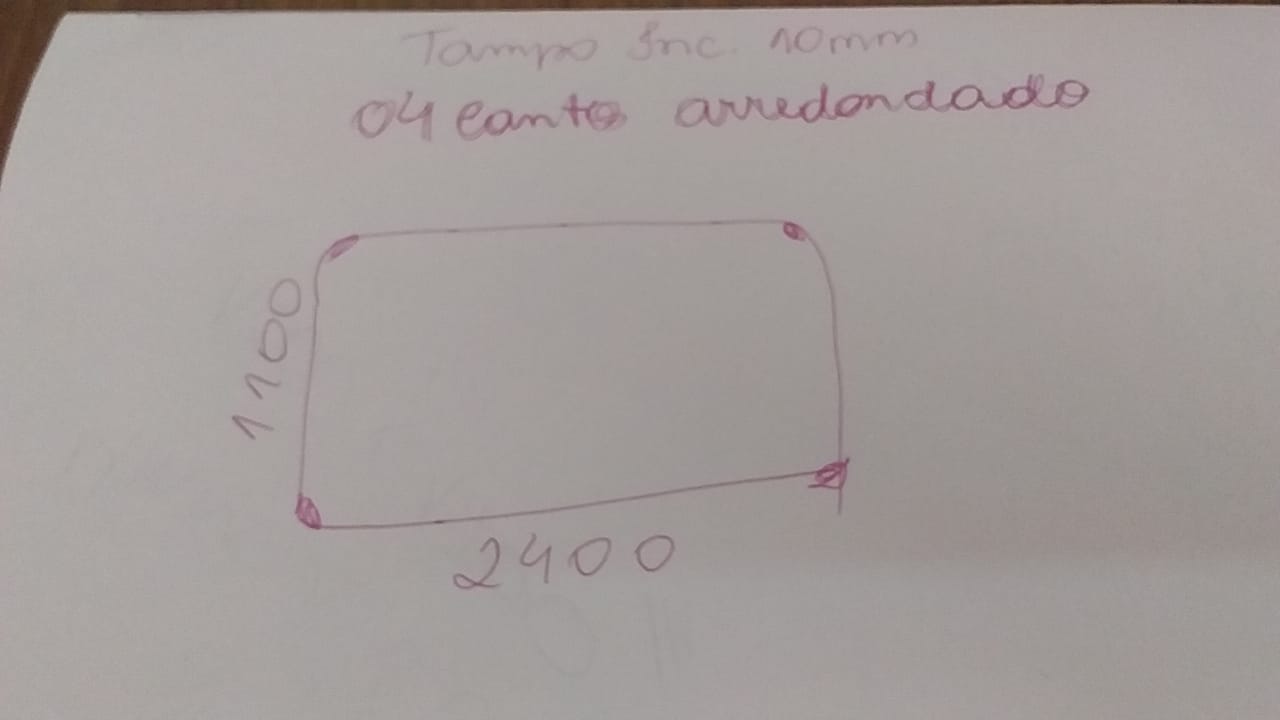 Tampo Inc. 10mm
04 canto arredondado
1100
2400